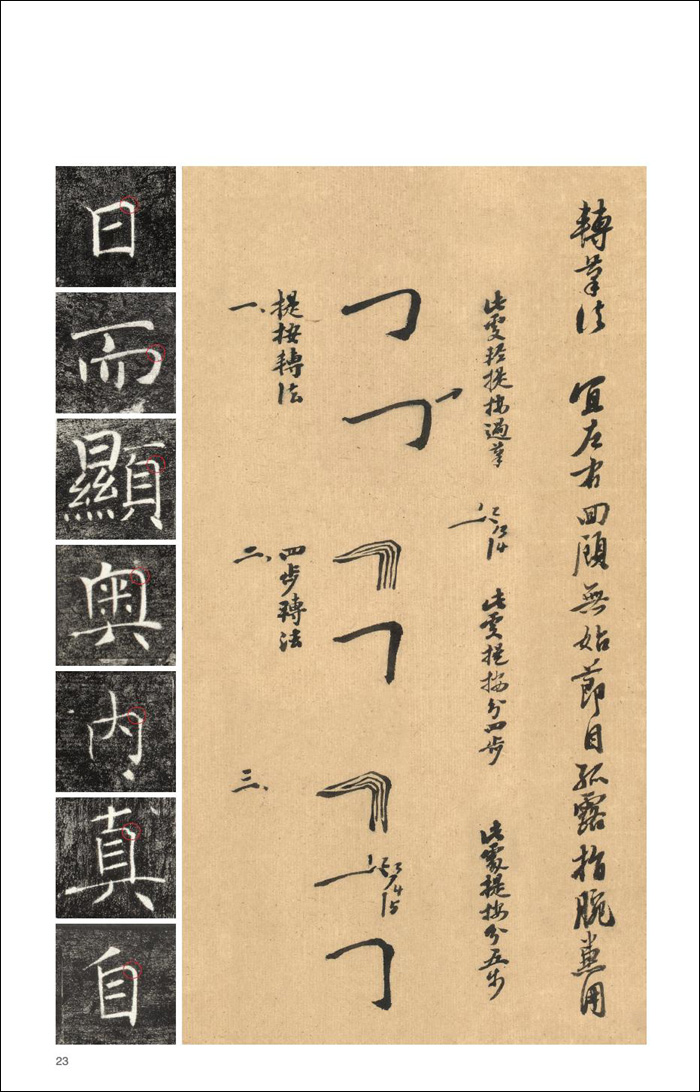 轉筆法 宜左右回顧無使節目孤露指腕用
此處提按過筆
1 2 3 4
此處提按分四步
此處提按分五步
1 2 3 4 5
一、提按轉法
二、四步轉法
三、
日
而
顯
奧
内
真
自
23